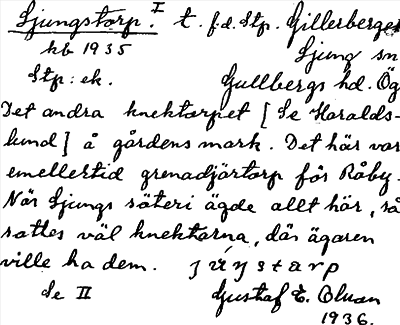 Ljungstorp. I t. f.d. Stp. Gillerberget
kb 1935 Ljung sn
Stp: ek. Gullbergs hd. Ög
Det andra knektorpet [Se Haralds-
lund] å gårdens mark. Det här var
emellertid grenadjärtorp för Råby.
När Ljungs säteri ägde allt här, så
sattes väl knektarna, där ägaren
ville ha dem.
Se II Gustaf E.
1936.